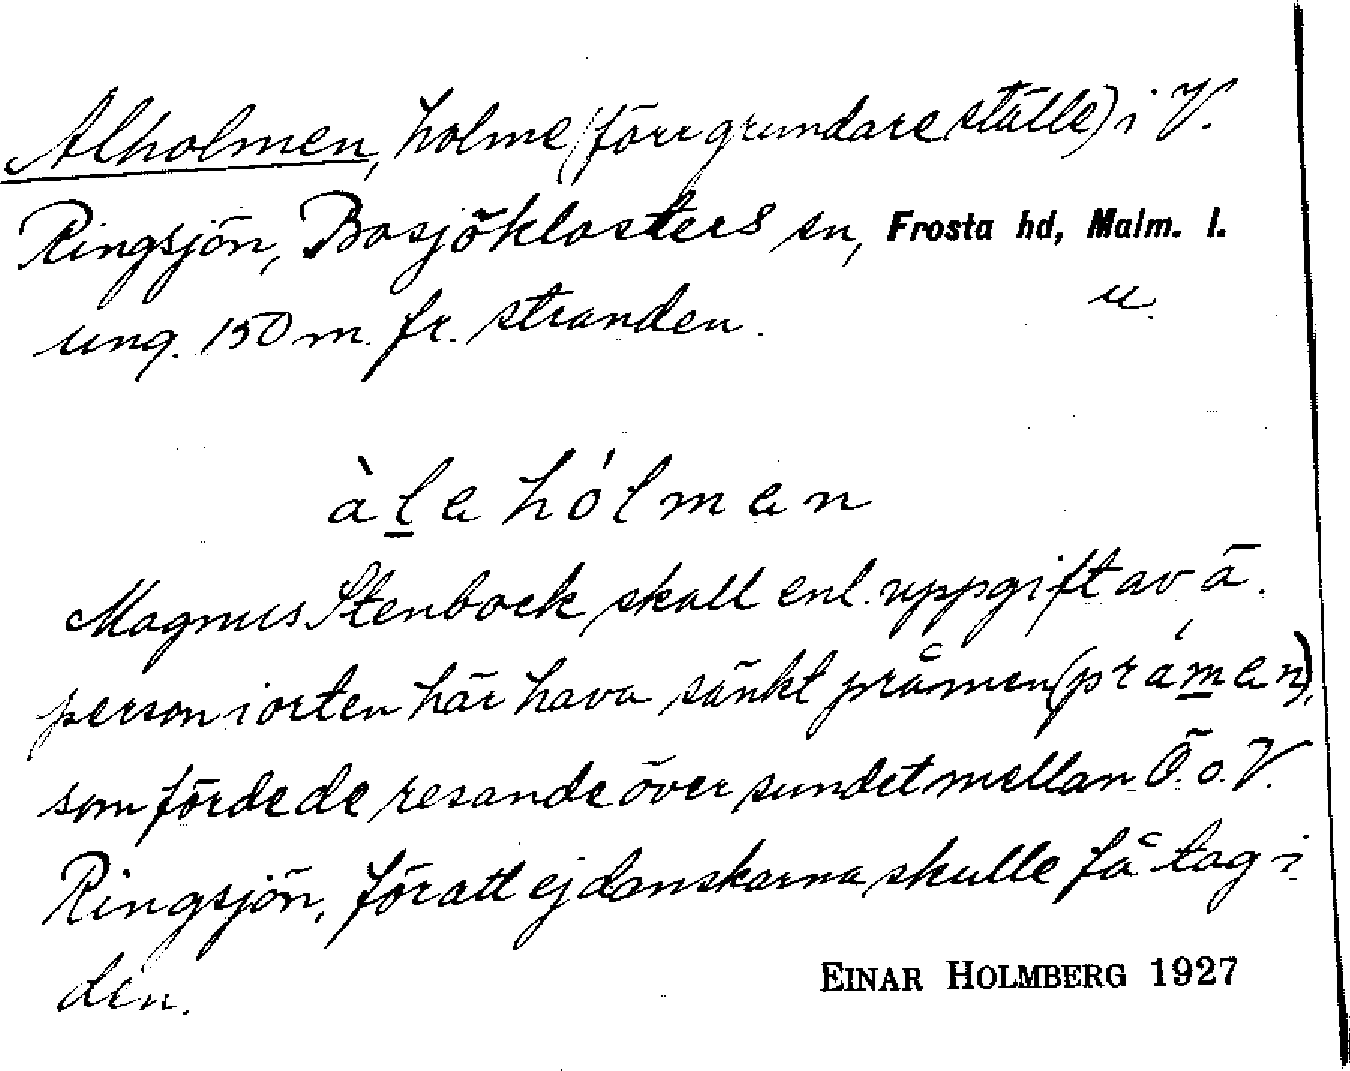 Alholmen, holme (förr grundare ställe) i V.
Ringsjön, Bosjöklosters sn, Frosta hd, Malm. l.
ung. 150 m. fr. stranden. u.
àla hólmen
Magnus Stenbock skall enl. uppgift av ä.
person i orten här hava sänkt pråmen (prámen),
som förde de resande över sundet mellan Ö. o. V.
Ringsjön, för att ej danskarna skulle få tag i
den.
EINAR HOLMBERG 1927